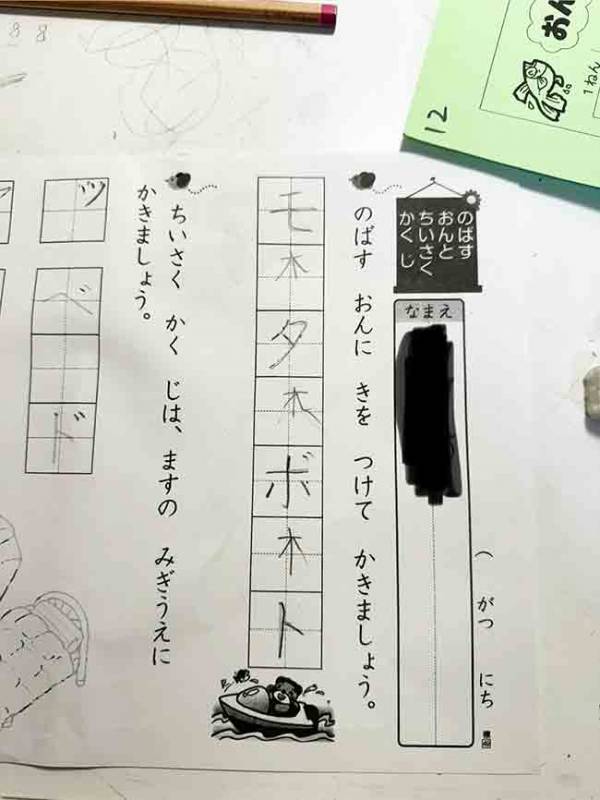 おん
1ねん
12
のばす
おんと
ちいさく
かく じ
なまえ
( がつ にち
のばす おんに きを つけて かきましょう。
モ木タ木ボ木ト
ちいさく かく じは、ますの みぎうえに
かきましょう。
ッ
ベ ド
8 8